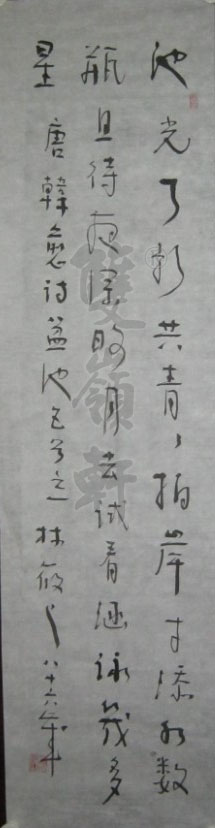 池光天影共青々拍岸才添水数
瓶且待夜深明月去试看涵泳幾多
星 唐韓愈诗盆池五首之 林筱之八十六歲
雙嶺軒